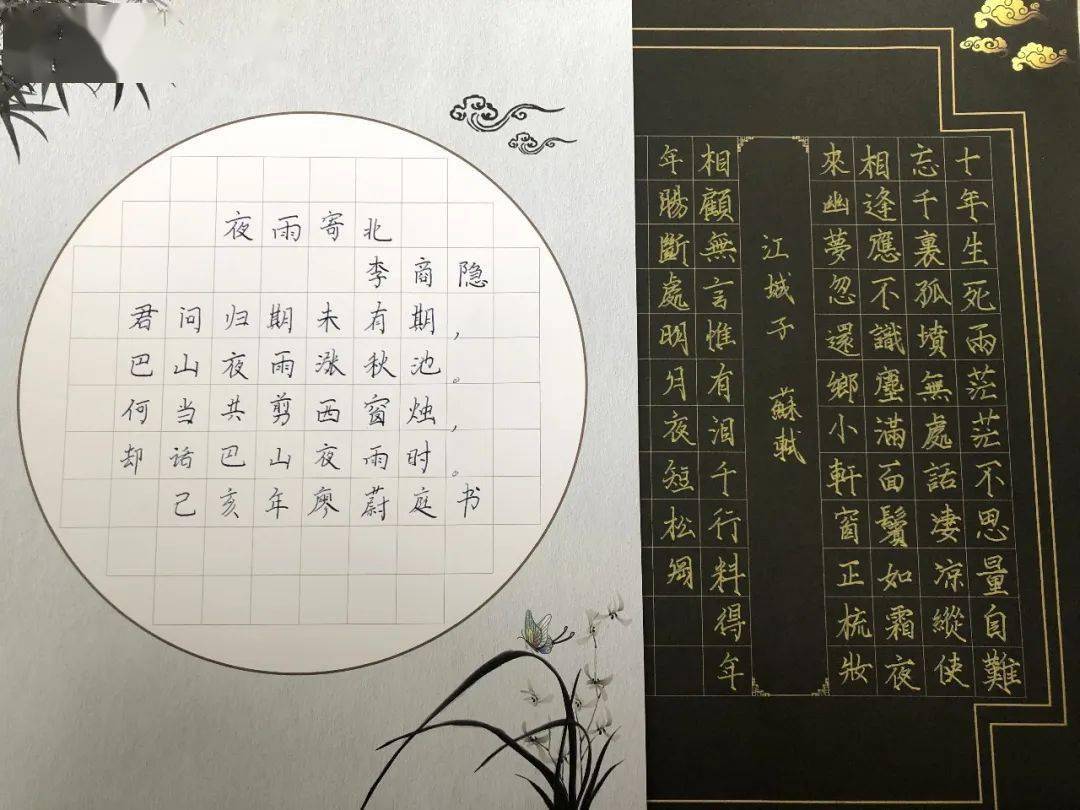 夜雨寄北
李商隐
君问归期未有期，
巴山夜雨涨秋池。
何当共剪西窗烛，
却话巴山夜雨时。
己亥年廖蔚庭书
十年生死兩茫茫不思量自難
忘千裏孤墳無處話凄凉縱使
相逢應不識塵滿面鬢如霜夜
來幽夢忽還鄉小軒窗正梳妝
江城子 蘇軾
相顧無言惟有泪千行料得年
年腸斷處明月夜短松岡